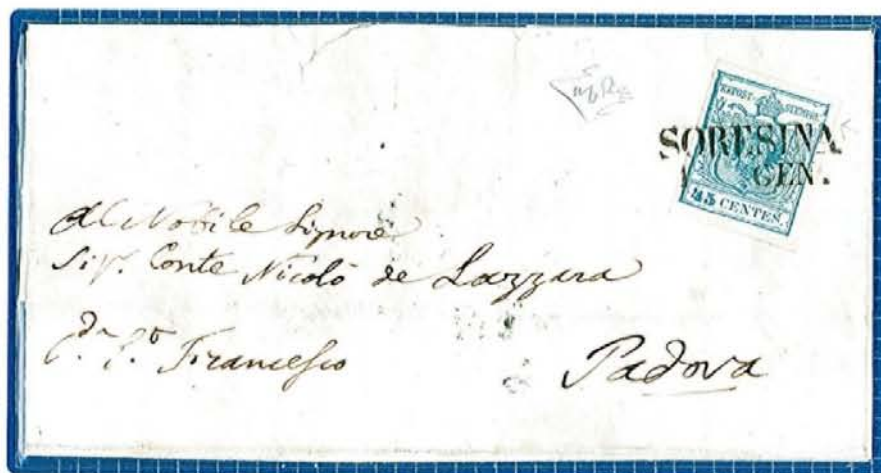 SORESINA
GEN.
45 CENTES.
Al Nobile Signore
Sig.r Conte Nicolò de Lazzara
Francesco
Padova